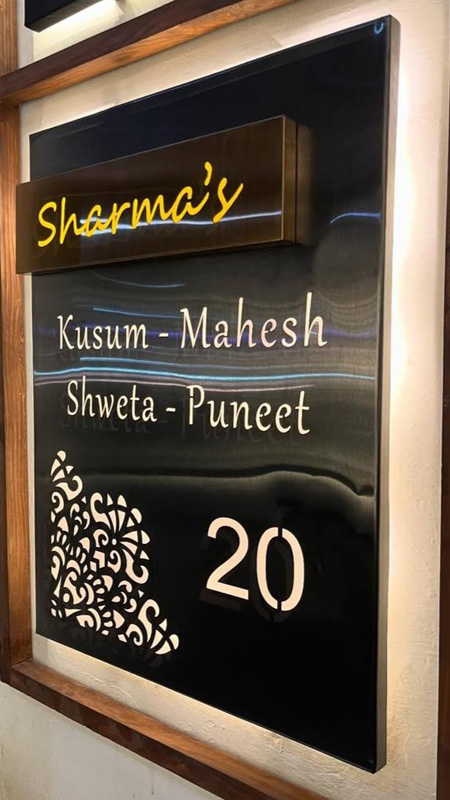 Sharma's
Kusum - Mahesh
Shweta - Puneet
20